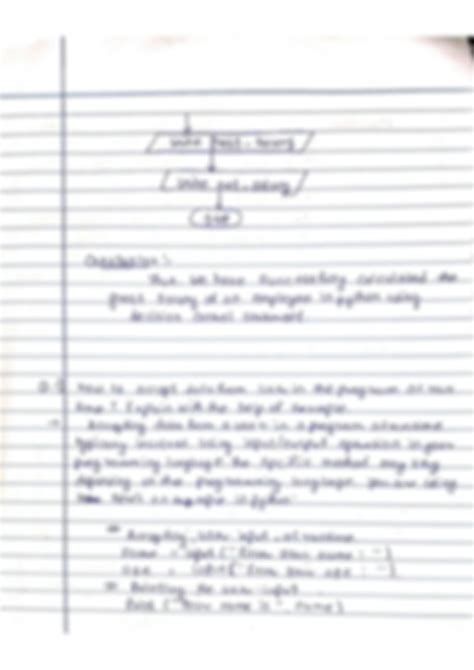 End
Conclusion :-
Thus we have successfully calculated the
gross salary of an employee in python using
decision control statement.
How to accept data from user in the program at run
time ? Explain with the help of example.
→ Accepting data from a user in a program at runtime
typically involves using input/output operation in your
programming language. the specific method may vary
depending on the programming language you are using
Here's an example in python:
Accepting user input at runtime
name = input ("Enter your name : ")
age = input ("Enter your age : ")
Printing the user input
Print ("Your name is ", name)